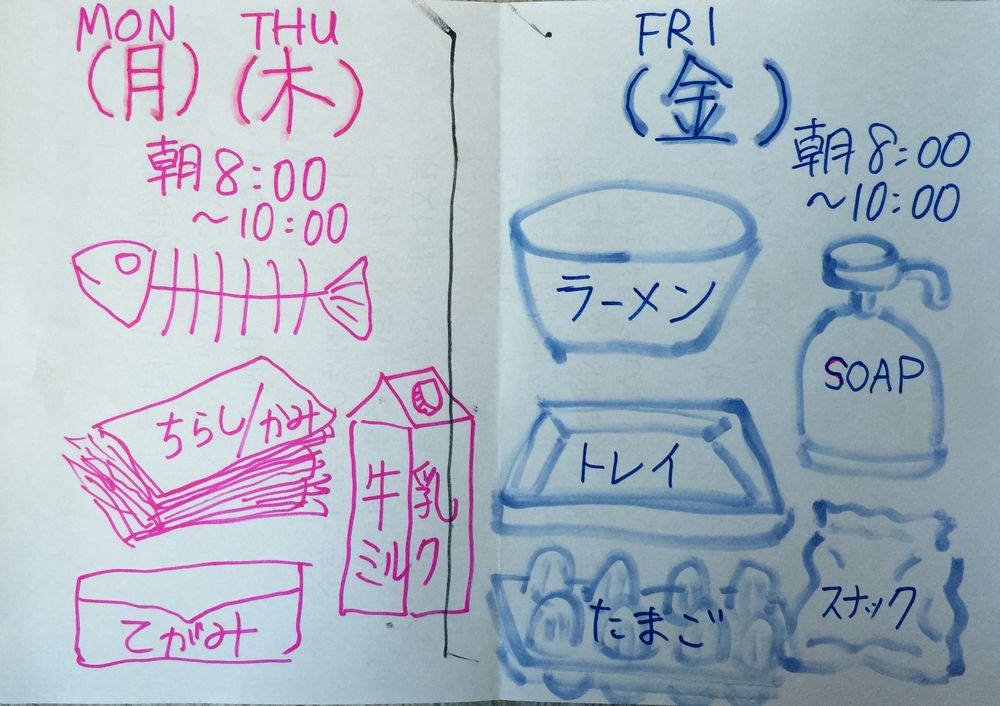 MON THU
(月) (木)
朝8:00
~10:00
ちらし/かみ
牛乳
ミルク
てがみ
FRI
(金)
朝8:00
~10:00
ラーメン
SOAP
トレイ
たまご
スナック